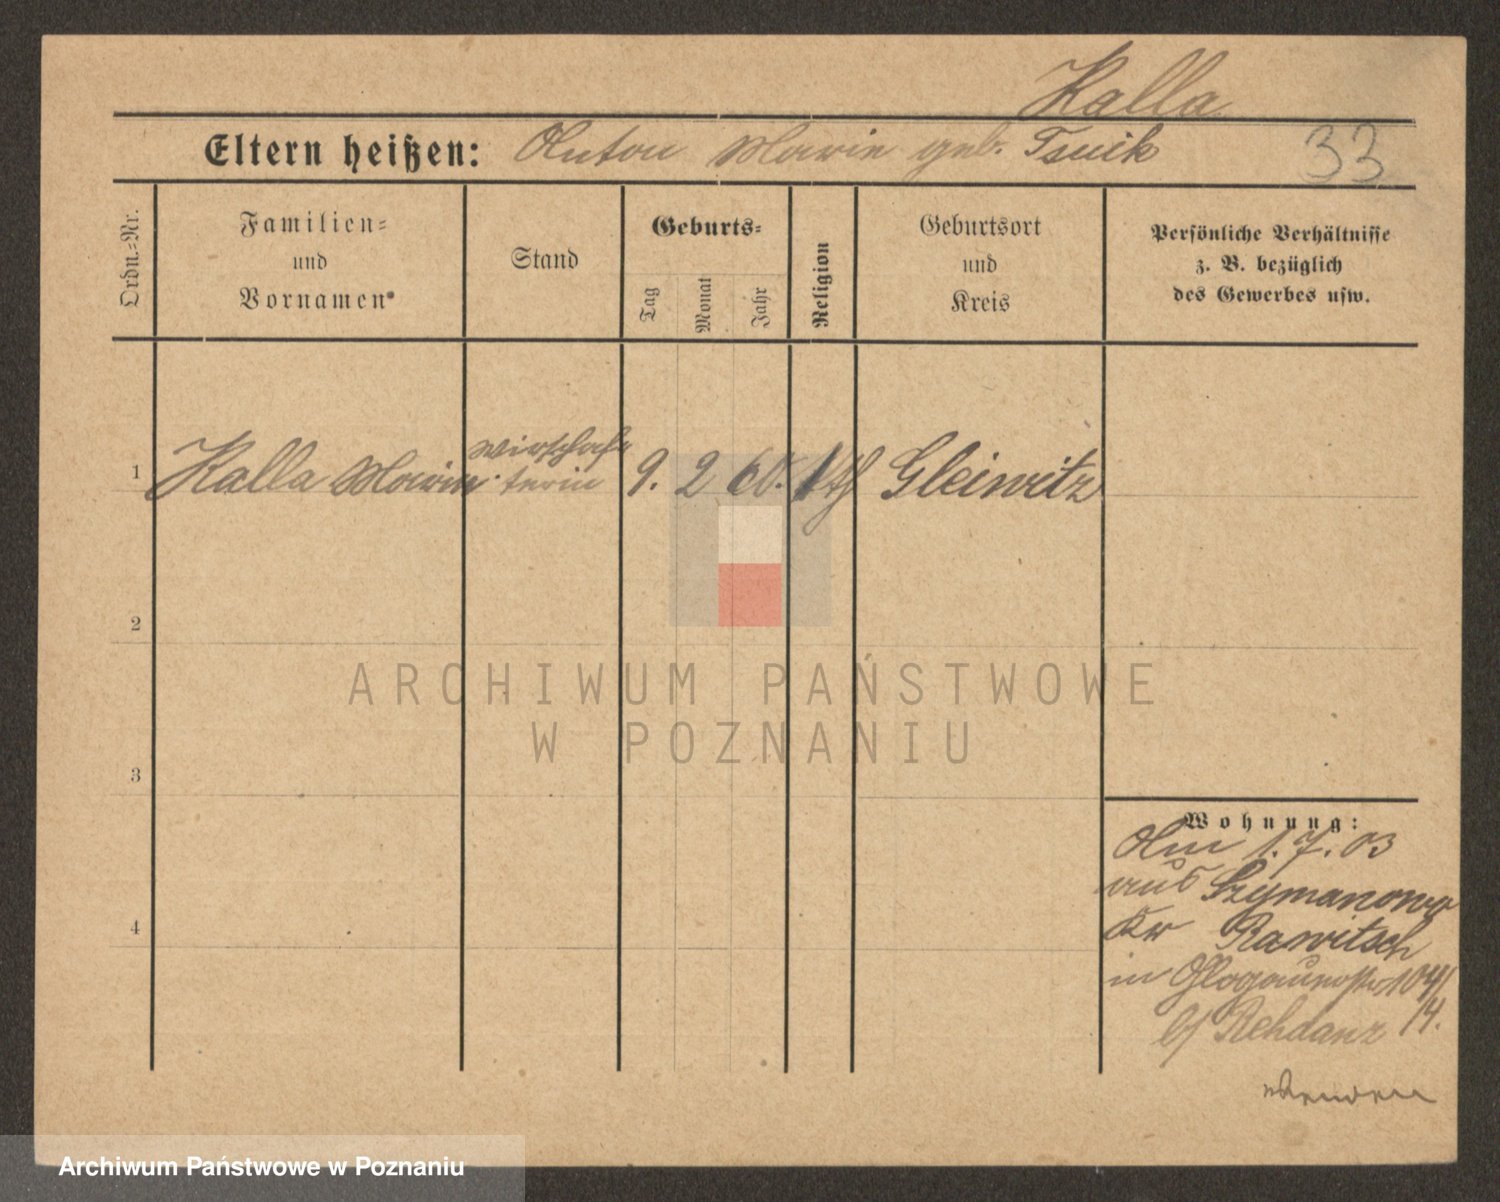 Kalla
Eltern heißen: Anton Marie geb. Tsuik
33
Ordn.=Nr.
Familien=
und
Vornamen
Stand
Geburts=
Tag
Monat
Jahr
Religion
Geburtsort
und
Kreis
Persönliche Verhältnisse
z. B. bezüglich
des Gewerbes usw.
1 Kalla Marie Wirtschaf
terin 9. 2 60. kth Gleiwitz
2
3
4
Wohnung:
Am 1.7.03
aus Szymanowo
Kr Rawitsch
in Glogauerstr 104/
b/ Rehdanz 14.
ARCHIWUM PAŃSTWOWE
W POZNANIU
Archiwum Państwowe w Poznaniu